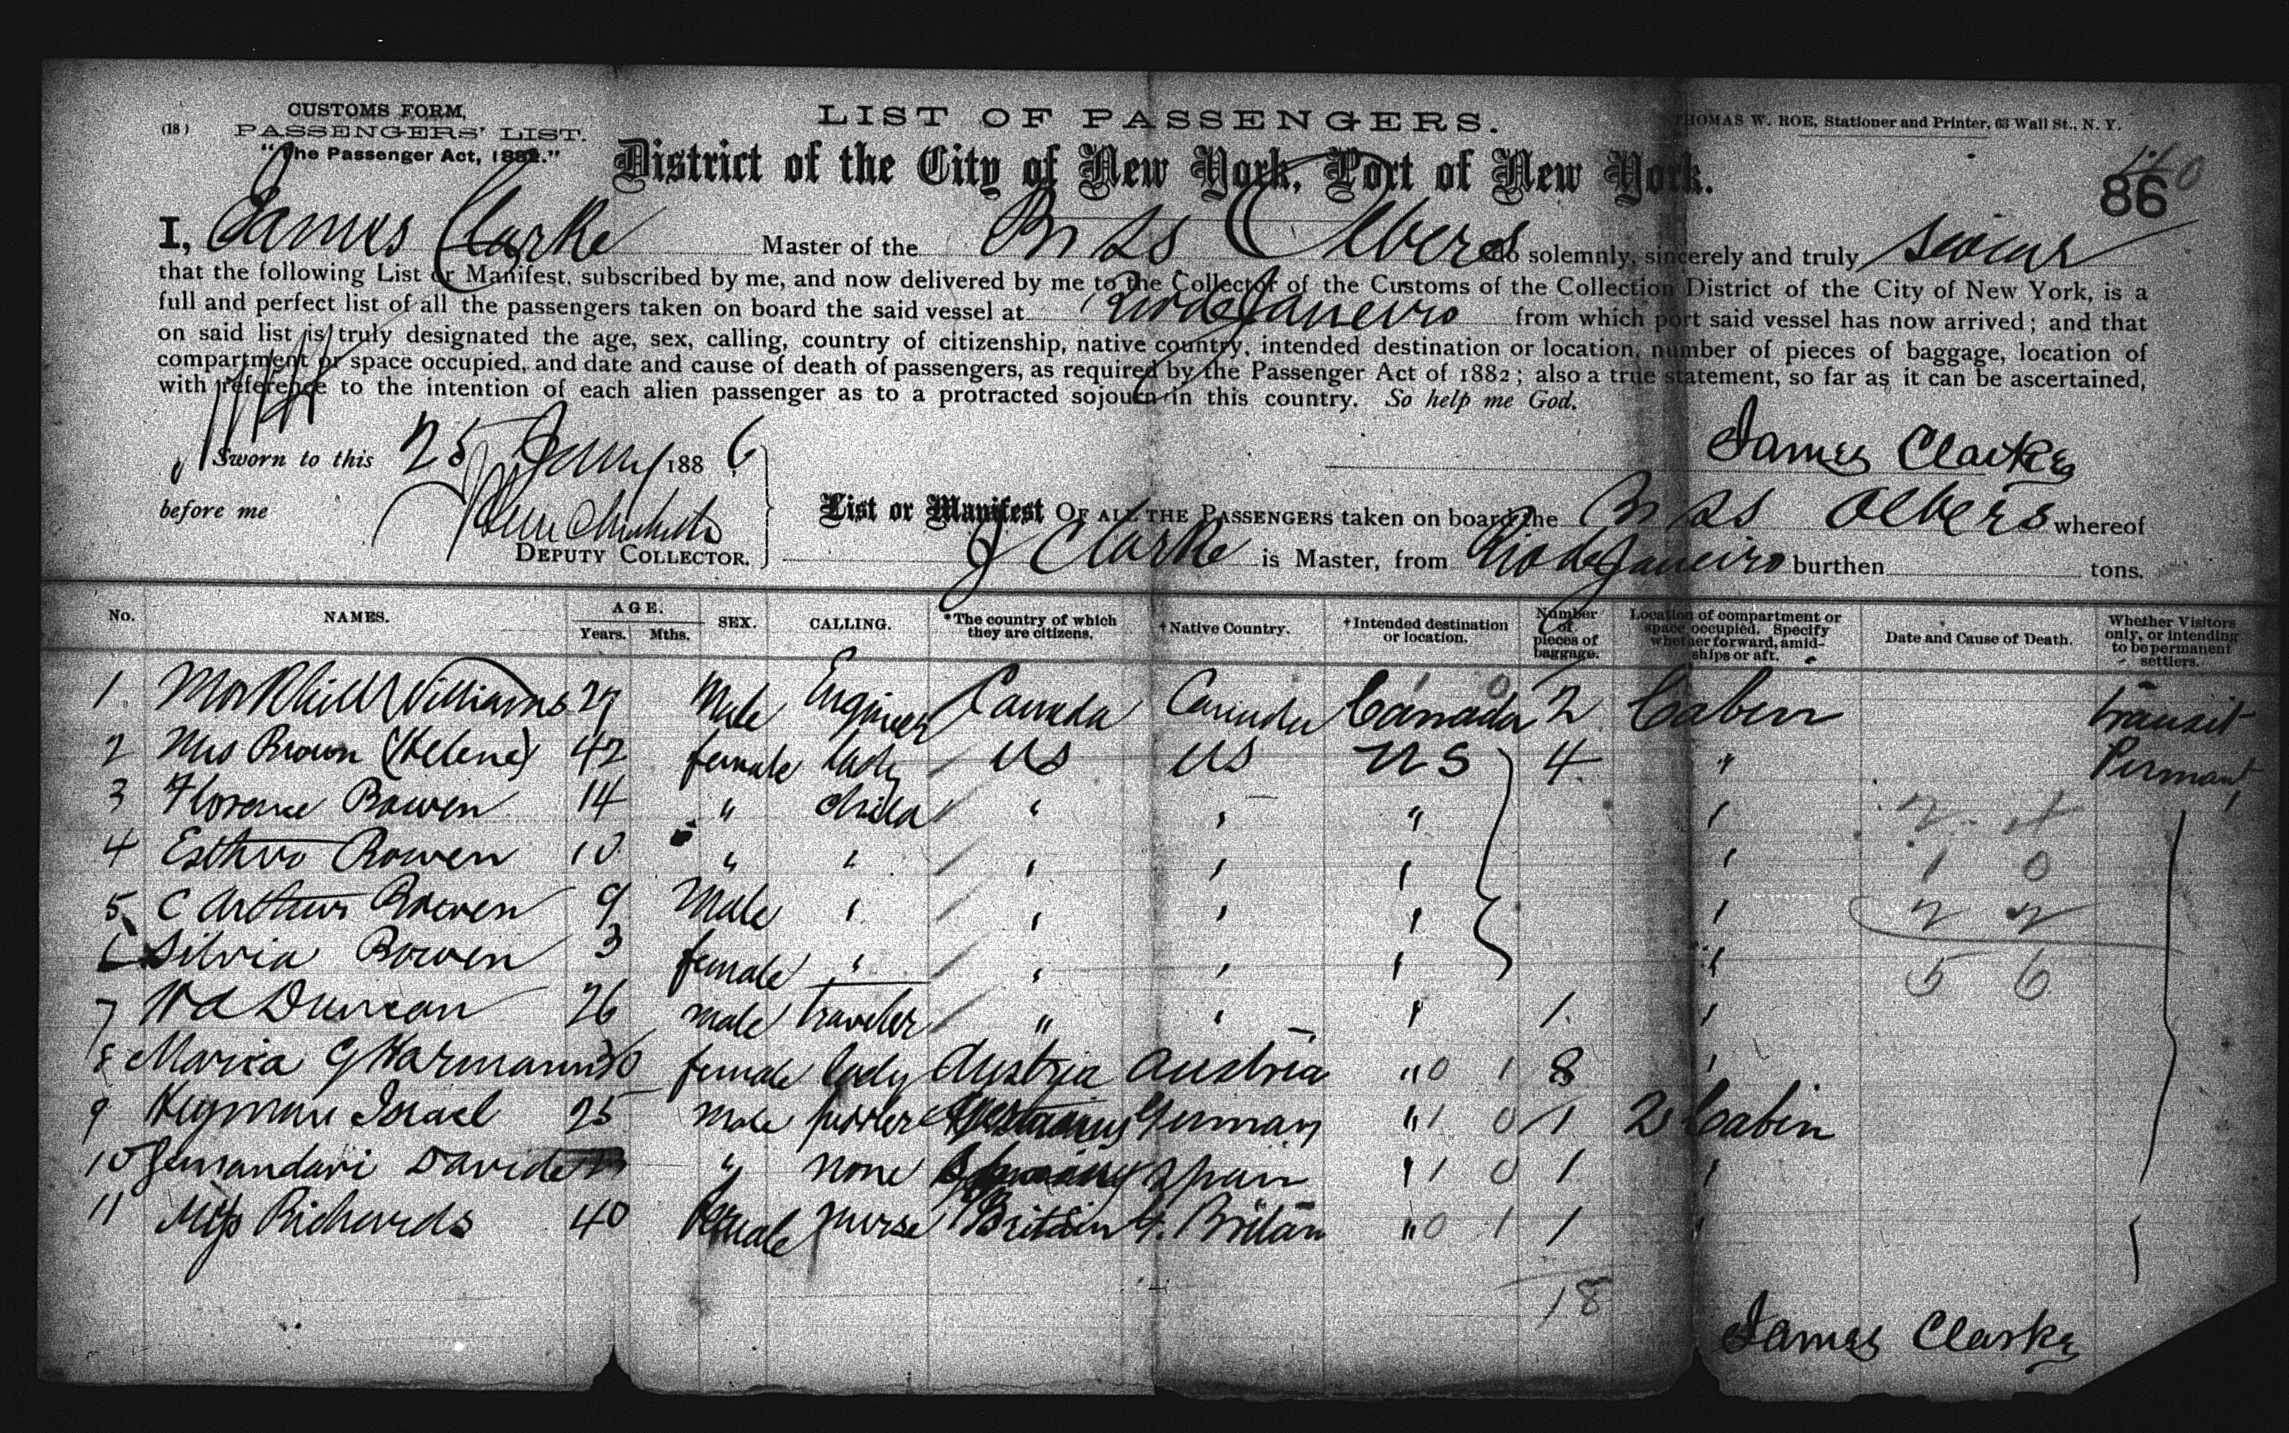 CUSTOMS FORM,
(18)
PASSENGERS' LIST.
"The Passenger Act, 1882."
LIST OF PASSENGERS.
THOMAS W. ROE, Stationer and Printer, 63 Wall St., N. Y.
District of the City of New York, Port of New York.
86
I, James Clarke Master of the Br SS Olbers do solemnly, sincerely and truly swear
that the following List or Manifest, subscribed by me, and now delivered by me to the Collector of the Customs of the Collection District of the City of New York, is a
full and perfect list of all the passengers taken on board the said vessel at Rio de Janeiro from which port said vessel has now arrived; and that
on said list is truly designated the age, sex, calling, country of citizenship, native country, intended destination or location, number of pieces of baggage, location of
compartment or space occupied, and date and cause of death of passengers, as required by the Passenger Act of 1882; also a true statement, so far as it can be ascertained,
with reference to the intention of each alien passenger as to a protracted sojourn in this country. So help me God.
James Clarke
Sworn to this 25 188 6
before me
DEPUTY COLLECTOR.
List or Manifest OF ALL THE PASSENGERS taken on board the Br SS Olbers whereof
J Clarke is Master, from Rio de Janeiro burthen tons.
No. NAMES. AGE. Years. Mths. SEX. CALLING. *The country of which they are citizens. †Native Country. †Intended destination or location. Number of pieces of baggage. Location of compartment or space occupied. Specify whether forward, amidships or aft. Date and Cause of Death. Whether Visitors only, or intending to be permanent settlers.
1 Williams 29 Male Engineer Canada Canada Canada 2 Cabin transit
2 Mrs Brown (Helene) 42 female lady US US US 4 " Permant
3 Florence Bowen 14 " child " " " "
4 Bowen 10 " " " " " "
5 C Arthur Bowen 9 Male " " " " "
6 Silvia Bowen 3 female " " " " "
7 Duncan 26 male traveler " " " 1 "
8 Maria G Harmann 30 female lady Austria Austria " 0 1 8 "
9 Israel 25 Male German " 1 0 1 2 Cabin
10 Davide " none Spain " 1 0 1 "
11 Miss Richards 40 Female nurse Britain G. Britain " 0 1 1 "
18
2 4
1 0
2 2
5 6
James Clarke